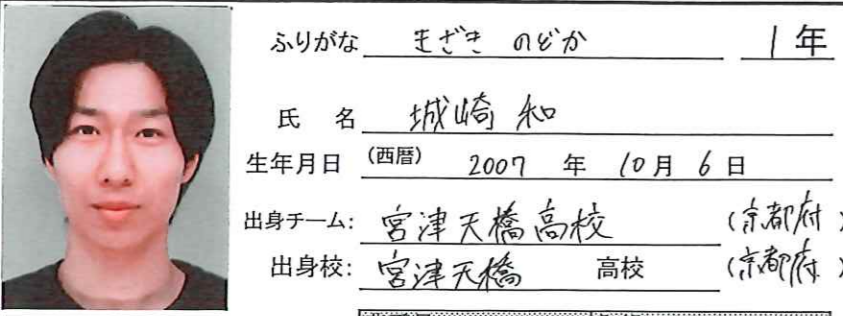 ふりがな きざき のどか 1年
氏名 城崎 和
生年月日 (西暦) 2007年 10月 6日
出身チーム: 宮津天橋高校 (京都府)
出身校: 宮津天橋 高校 (京都府)